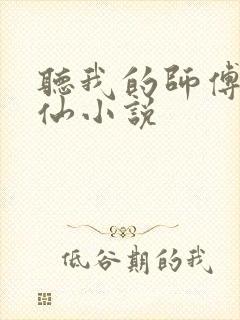 聽我的師傅
仙小説
低谷期的我